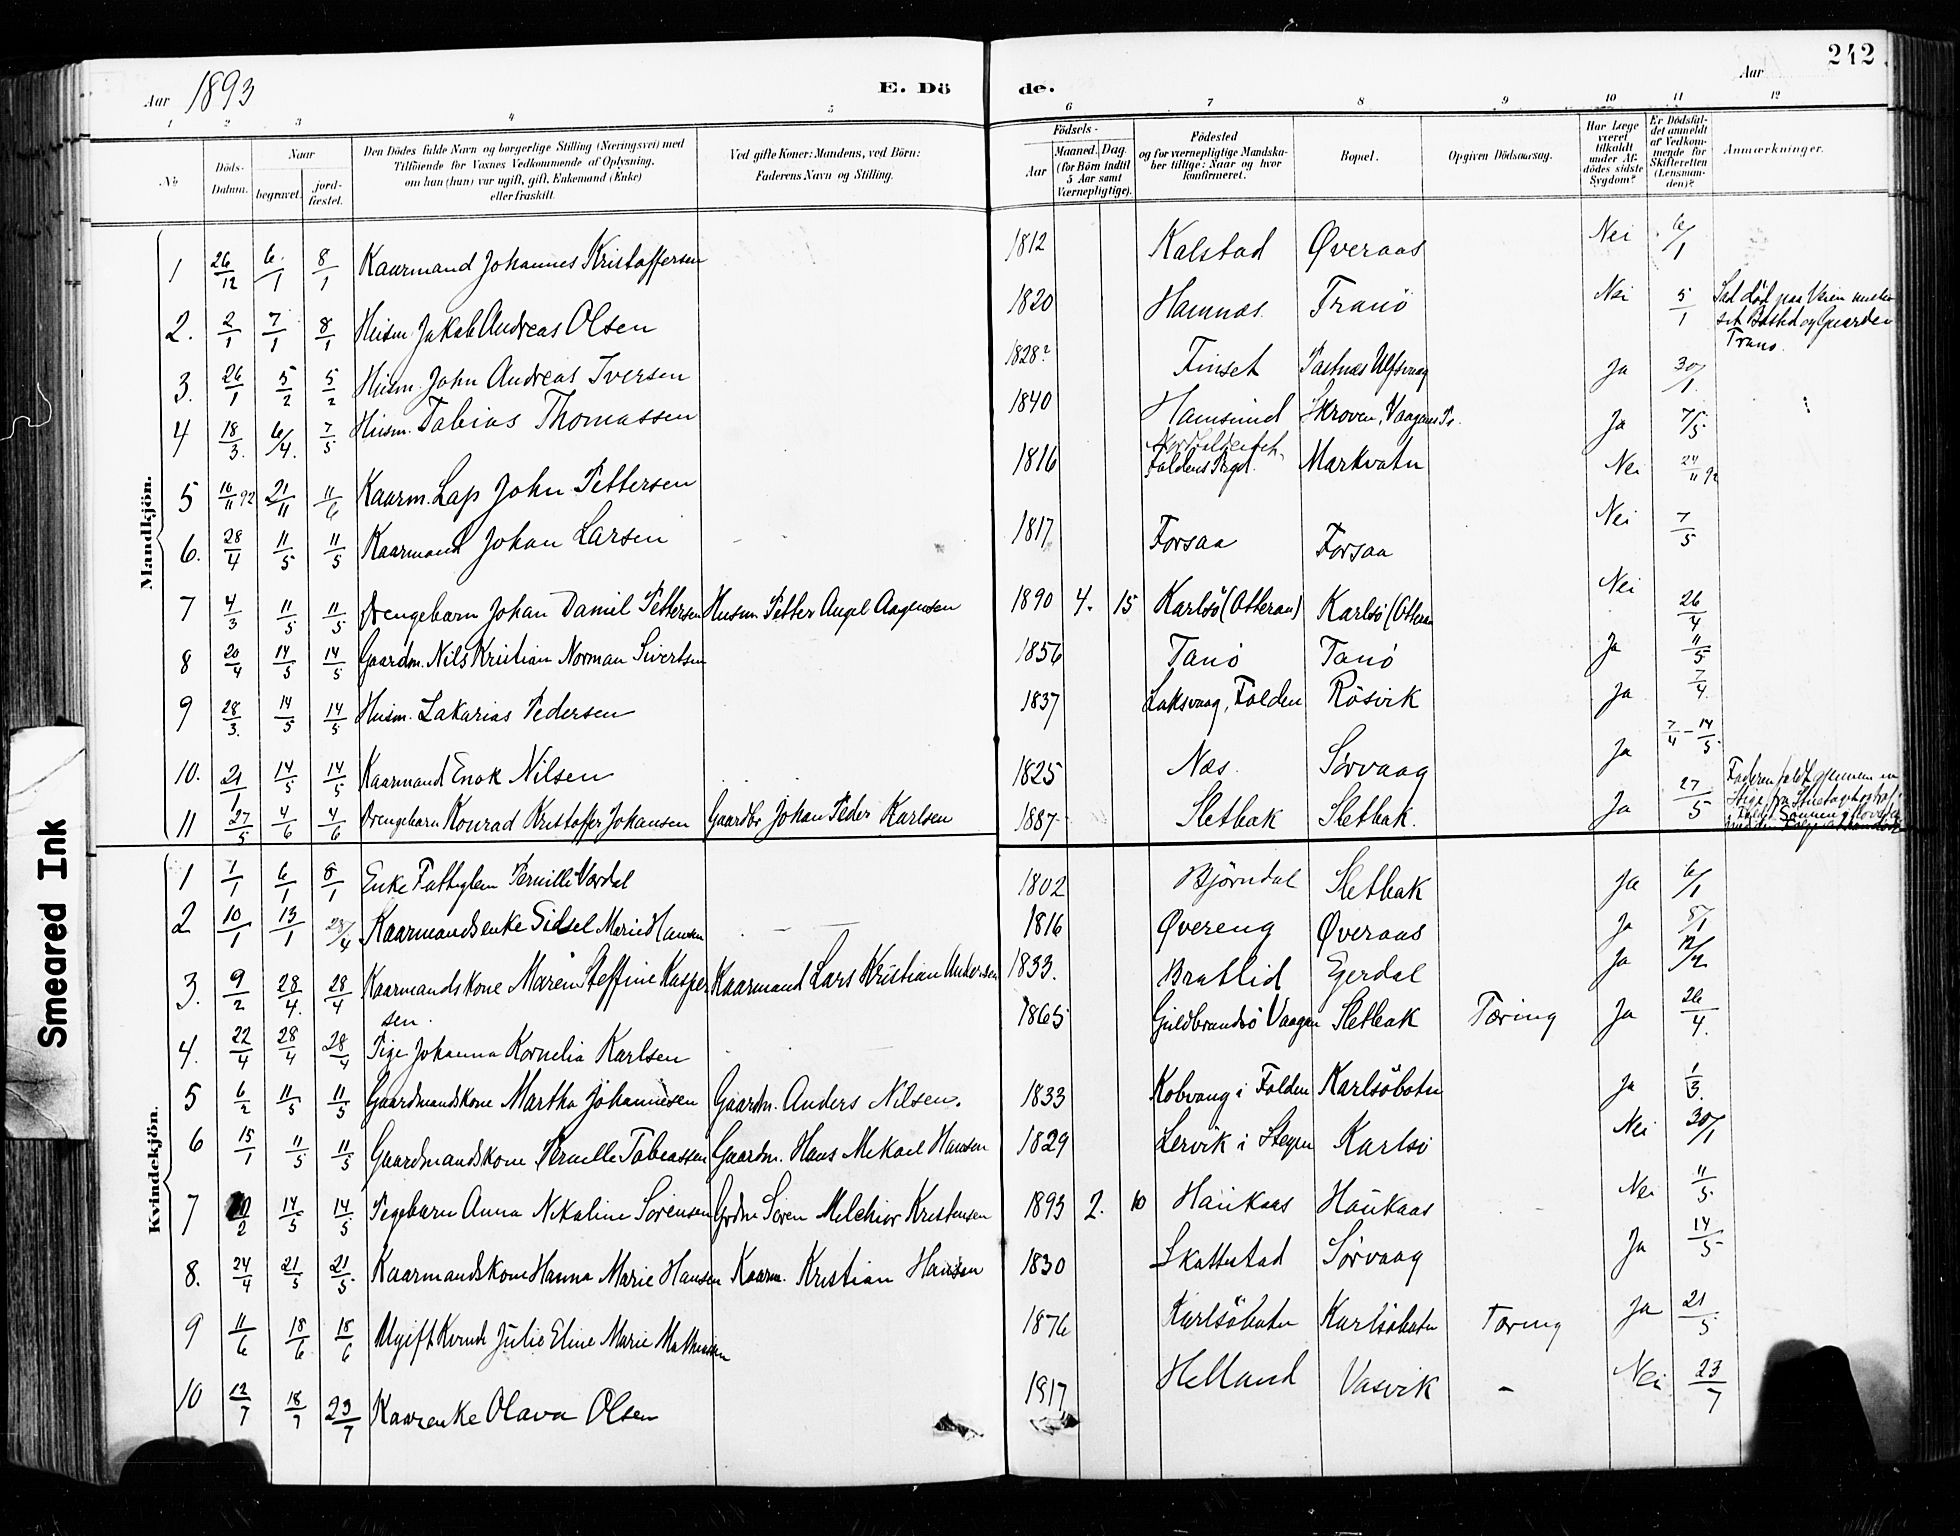 242
Aar 1893 E. Dö de. Aar
1 2 3 4 5 6 7 8 9 10 11 12
No
Döds-Datum.
Naar
begravet.
jord-fæstet.
Den Dödes fulde Navn og borgerlige Stilling (Næringsvei) med
Tilföiende for Voxnes Vedkommende af Oplysning,
om han (hun) var ugift, gift, Enkemand (Enke)
eller fraskilt.
Ved gifte Koner: Mandens, ved Börn:
Faderens Navn og Stilling.
Födsels-
Aar
Maaned. Dag
(for Börn indtil
5 Aar samt
Værnepligtige).
Födested
og for værnepligtige Mandska-
ber tillige: Naar og hvor
konfirmeret.
Bopæl.
Opgiven Dödsaarsag.
Har Læge
været
tilkaldt
under Af-
dödes sidste
Sygdom?
Er Dödsfal-
det anmeldt
af Vedkom-
mende for
Skifteretten
(Lensman-
den)?
Anmærkninger.
Mandkjön.
1 26/12 6/1 8/1 Kaarmand Johannes Kristoffersen 1812 Kalstad Øveraas Nei 6/1
2. 2/1 7/1 8/1 Husm. Jakob Andreas Olsen 1820 Hamnæs. Tranö Nei 5/1 død paa Veien mellem og Gaarden Tranö.
3. 26/1 5/2 5/2 Husm. John Andreas Iversen 1828? Finset Ulfsvaag Ja 30/1.
4 18/3. 6/4. 7/5 Husm. Tobias Thomassen 1840 Hamsund Skroven, Vaagens Ja 7/5
5 16/11 92 21/11 11/6 Kaarm. Lap John Pettersen 1816 Foldens Prgd. Markvatn Nei 24/11 92
6. 28/4 11/5 11/5 Kaarmand Johan Larsen 1817 Forsaa Forsaa Nei 7/5
7 4/3 11/5 11/5 Drengebarn Johan Daniel Pettersen Husm Petter Angel Aagensen 1890 4. 15 Karlsö (Otteraa) Karlsö (Otteraa Nei 26/4
8 20/4 14/5 14/5 Gaardm. Nils Kristian Norman Sivertsen 1856 Tanö Tanö Ja 11/5
9 28/3. 14/5 14/5 Husm. Zakarias Pedersen 1837 Laksvaag, Folden Rösvik Ja 7/4.
10. 21/1 14/5 14/5 Kaarmand Enok Nilsen 1825 Næs. Sörvaag Ja 7/4 - 14/5.
11 27/5 4/6 4/6 Drengebarn Konrad Kristoffer Johansen Gaardbr Johan Peder Karlsen 1887 Sletbak Sletbak. Ja 27/5
Kvindekjön.
1 1/1 6/1 8/1 Enke Fattiglem Pernille Vardal 1802 Björndal Sletbak Ja 6/1
2 10/1 13/1 23/4 Kaarmandsenke Sidsel Marie Hansen 1816 Øvereng Øveraas Ja 8/1
3. 9/2 28/4. 28/4 Kaarmandskone Maren Steffine Kasper Kaarmand Lars Kristian Andersen 1833. Bratlid Egerdal Ja 12/2
sen.
4. 22/4 28/4 28/4 Pige Johanna Kornelia Karlsen 1865 Guldbrandsö Vaagan Sletbak Tæring Ja 26/4.
5 6/2 11/5 11/5 Gaardmandskone Martha Johannesen Gaardm. Anders Nilsen. 1833 Kobvaag i Folden Karlsöbotn Ja 1/3.
6 15/1 11/5 11/5 Gaardmandskone Pernille Tobiassen Gaardm. Hans Mikael Hansen 1829 Lervik i Stegen Karlsö Nei 30/1
7 /2 14/5 14/5 Pigebarn Anna Nikoline Sörensen Grdm Sören Melchior Kristensen 1893 2. 10 Haukaas Haukaas Nei 11/5
8. 24/4 21/5 21/5. Kaarmandskone Hanna Marie Hansen Kaarm. Kristian Hansen 1830 Skattestad Sörvaag Ja 14/5
9 11/6 18/6 18/6 Ugift Kvinde Julie Eline Marie Mathiassen 1876 Karlsöbotn Karlsöbotn Tæring Ja 21/5.
10 12/7 18/7 23/7 Kaarenke Olava Olsen 1817 Helland Vasvik - Nei 23/7
Smeared Ink